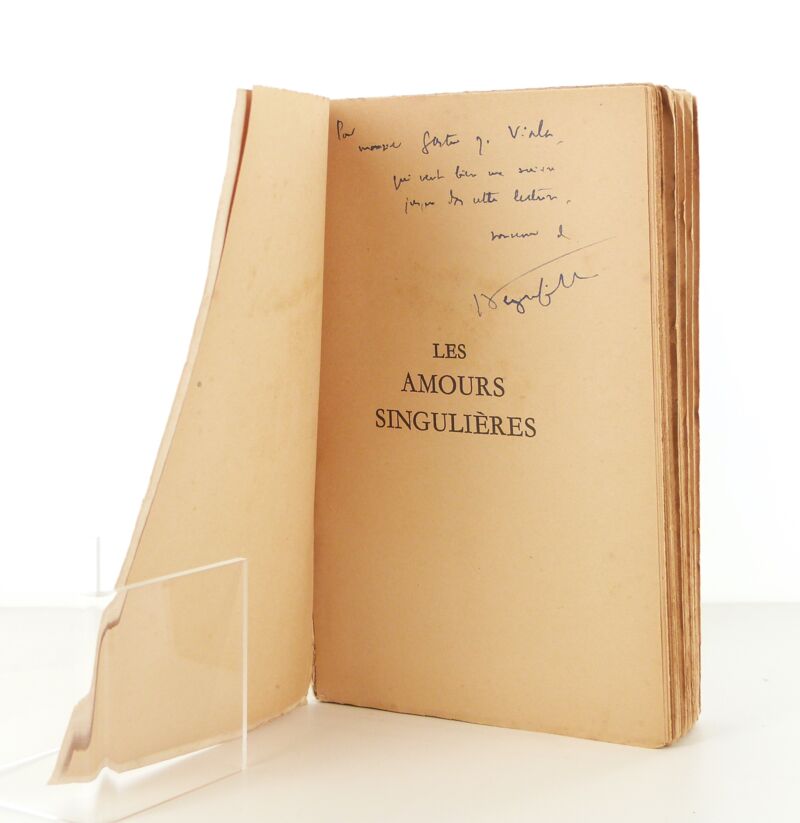 Pour
monsieur Gaston J. Viala,
qui veut bien me suivre
jusque dans cette lecture,
souvenir de
LES
AMOURS
SINGULIÈRES